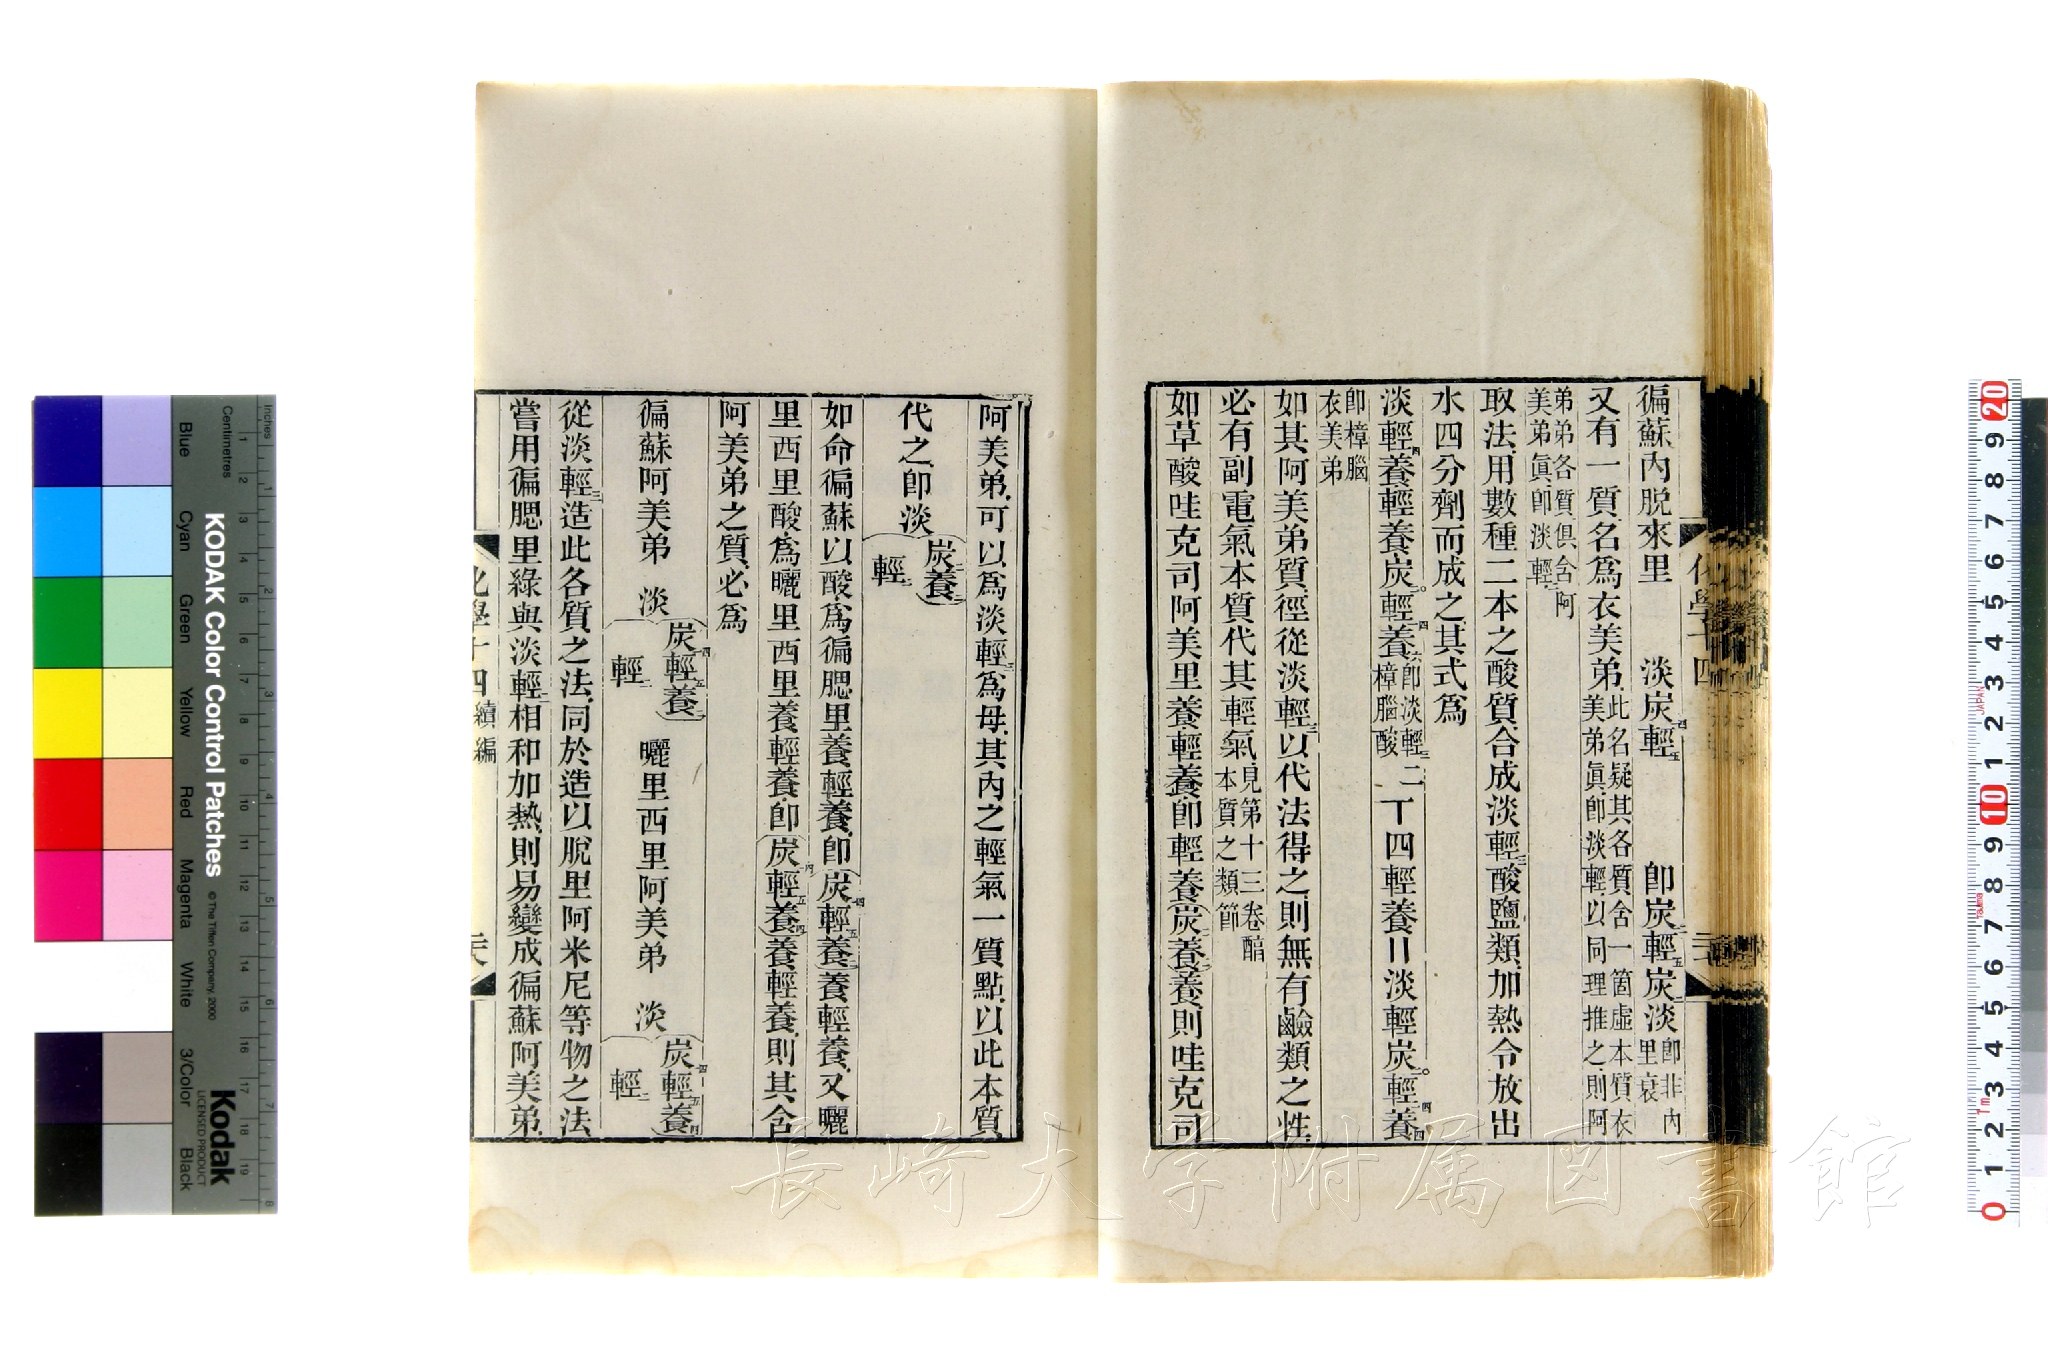 徧蘇內脫來里　淡炭輕　卽炭輕炭淡卽非內里哀
又有一質名爲衣美弟此名疑其各質含一箇虛本質衣美弟眞卽淡輕以同理推之則阿
弟弟各質俱含阿美弟眞卽淡輕
取法用數種二本之酸質合成淡輕三酸鹽類加熱令放出
水四分劑而成之其式爲
淡輕四養輕養炭輕四養六卽淡輕三樟腦酸二丅四輕養〣淡輕炭輕四養四
卽樟腦衣美弟
如其阿美弟質徑從淡輕三以代法得之則無有鹼類之性
必有副電氣本質代其輕氣見第十三卷醕本質之類節
如草酸哇克司阿美里養輕養卽輕養炭養養則哇克司
阿美弟可以爲淡輕三爲母其內之輕氣一質點以此本質
代之卽淡炭二養二輕二
如命徧蘇以酸爲徧腮里養輕養卽炭輕五養二養輕養又曬
里西里酸爲曬里西里養輕養卽炭輕五養四養輕養則其含
阿美弟之質必爲
徧蘇阿美弟　淡炭輕五養二輕二　曬里西里阿美弟　淡炭輕五養四輕二
從淡輕三造此各質之法同於造以脫里阿米尼等物之法
嘗用徧腮里綠與淡輕三相和加熱則易變成徧蘇阿美弟
化學十四續編
二六
化學十四
長崎大学附属図書館
KODAK Color Control Patches
© The Tiffen Company, 2000
Kodak
LICENSED PRODUCT
Inches
Centimetres
Blue
Cyan
Green
Yellow
Red
Magenta
White
3/Color
Black
1 2 3 4 5 6 7 8
1 2 3 4 5 6 7 8 9 10 11 12 13 14 15 16 17 18 19
0 1 2 3 4 5 6 7 8 9 10 1 2 3 4 5 6 7 8 9 20
1m
JAPAN